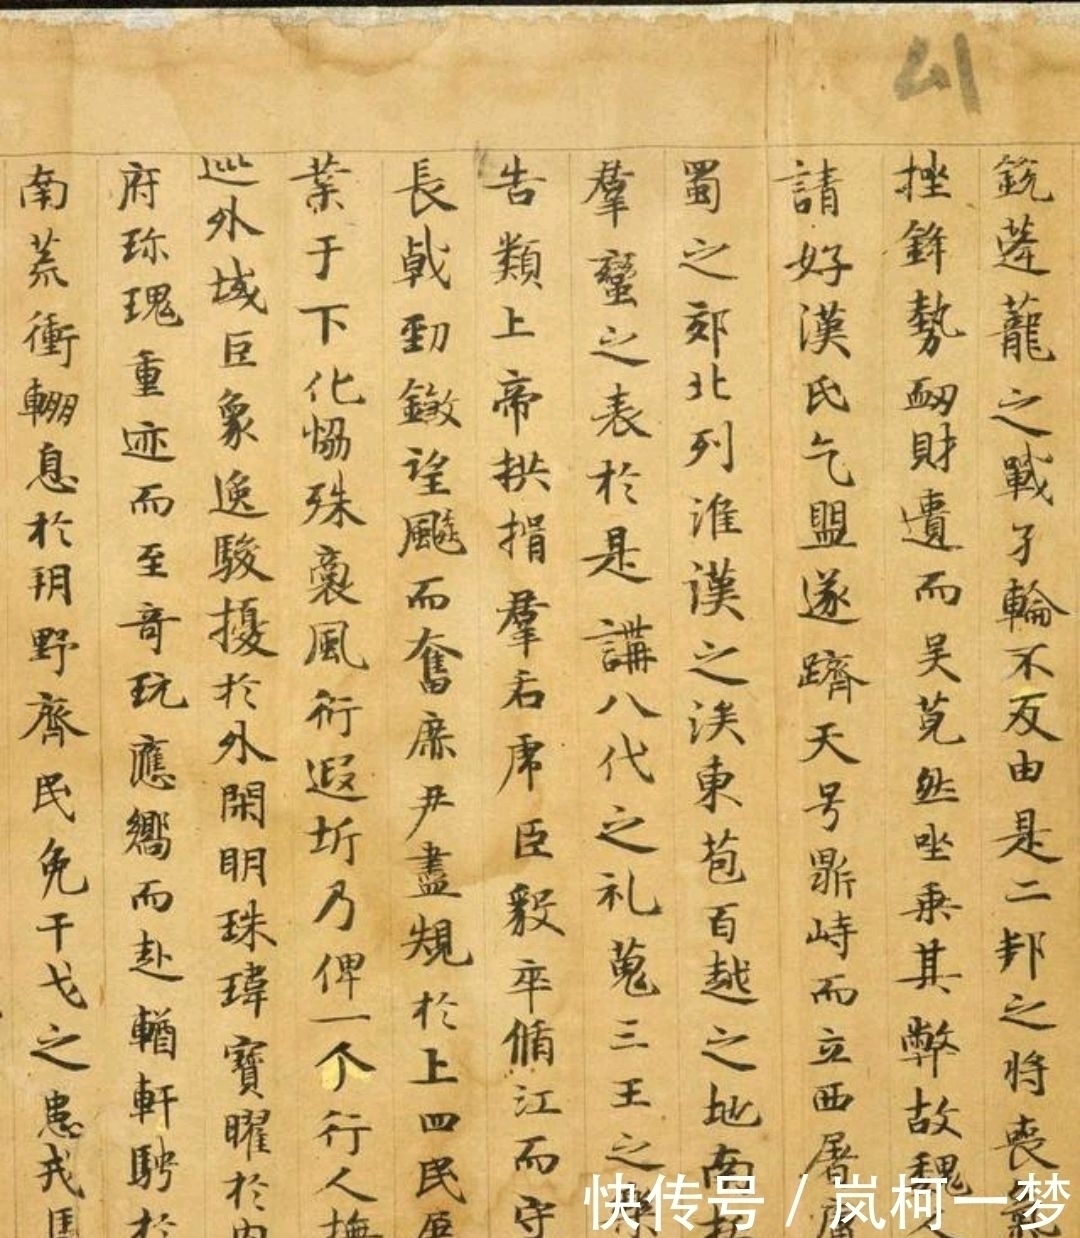 銳蓬蘢之戰孑輪不反由是二邦之將喪氣
挫鋒勢衂財遺而吴莞然坐乗其弊故魏人
請好漢氏乞盟遂躋天号鼎峙而立西屠庸
蜀之郊北列淮漢之涘東苞百越之地南括
羣蠻之表於是講八代之礼蒐三王之樂
告類上帝拱揖羣后席臣毅卒循江而守
長戟勁鎩望飈而奮庶尹盡規於上四民展
業于下化恊殊裔風衍遐圻乃俾一个行人撫
巡外域臣象逸駿擾於外閑明珠瑋寶曜於内
府珎瑰重迹而至竒玩應嚮而赴輶軒騁於
南荒衝輣息於朔野齊民免干戈之患戎馬
41
快传号 / 岚柯一梦